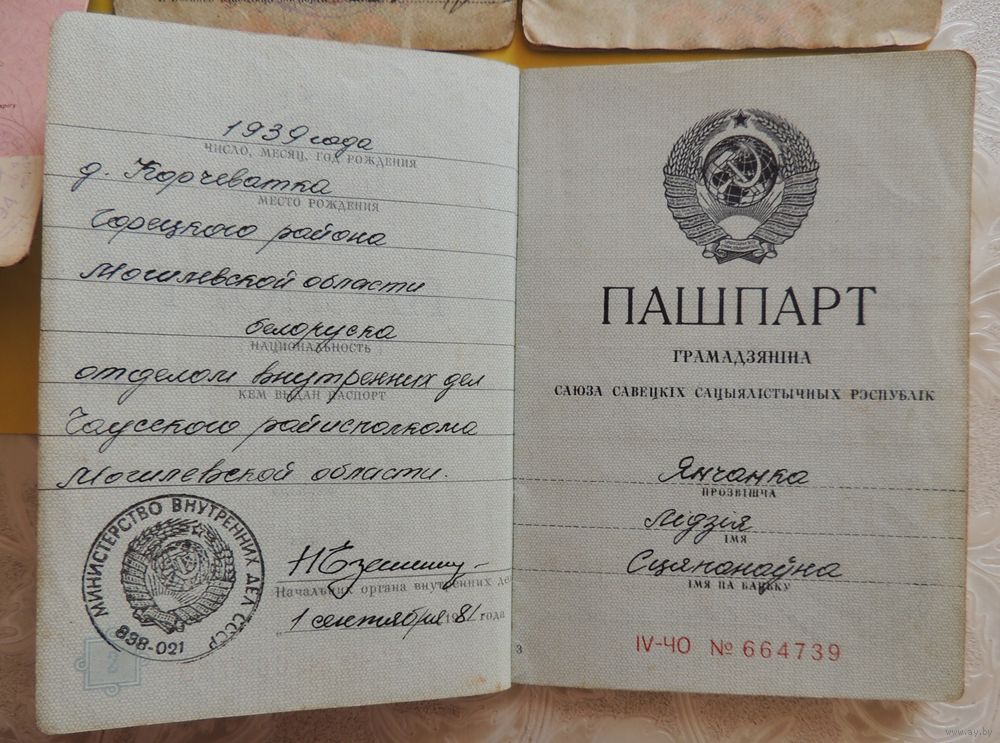 1939 года
ЧИСЛО, МЕСЯЦ, ГОД РОЖДЕНИЯ
д. Корчеватка
МЕСТО РОЖДЕНИЯ
Горецкого района
Могилевской области
белоруска
НАЦИОНАЛЬНОСТЬ
отделом внутренних дел
КЕМ ВЫДАН ПАСПОРТ
Чаусского райисполкома
Могилевской области.
МИНИСТЕРСТВО ВНУТРЕННИХ ДЕЛ СССР
838-021
Начальник органа внутренних дел
„1 сентября 1981 года
ПАШПАРТ
ГРАМАДЗЯНІНА
САЮЗА САВЕЦКІХ САЦЫЯЛІСТЫЧНЫХ РЭСПУБЛІК
Янчанка
ПРОЗВІШЧА
Лідзія
ІМЯ
Сцяпанаўна
ІМЯ ПА БАЦЬКУ
IV-ЧО № 664739
3
www.ay.by